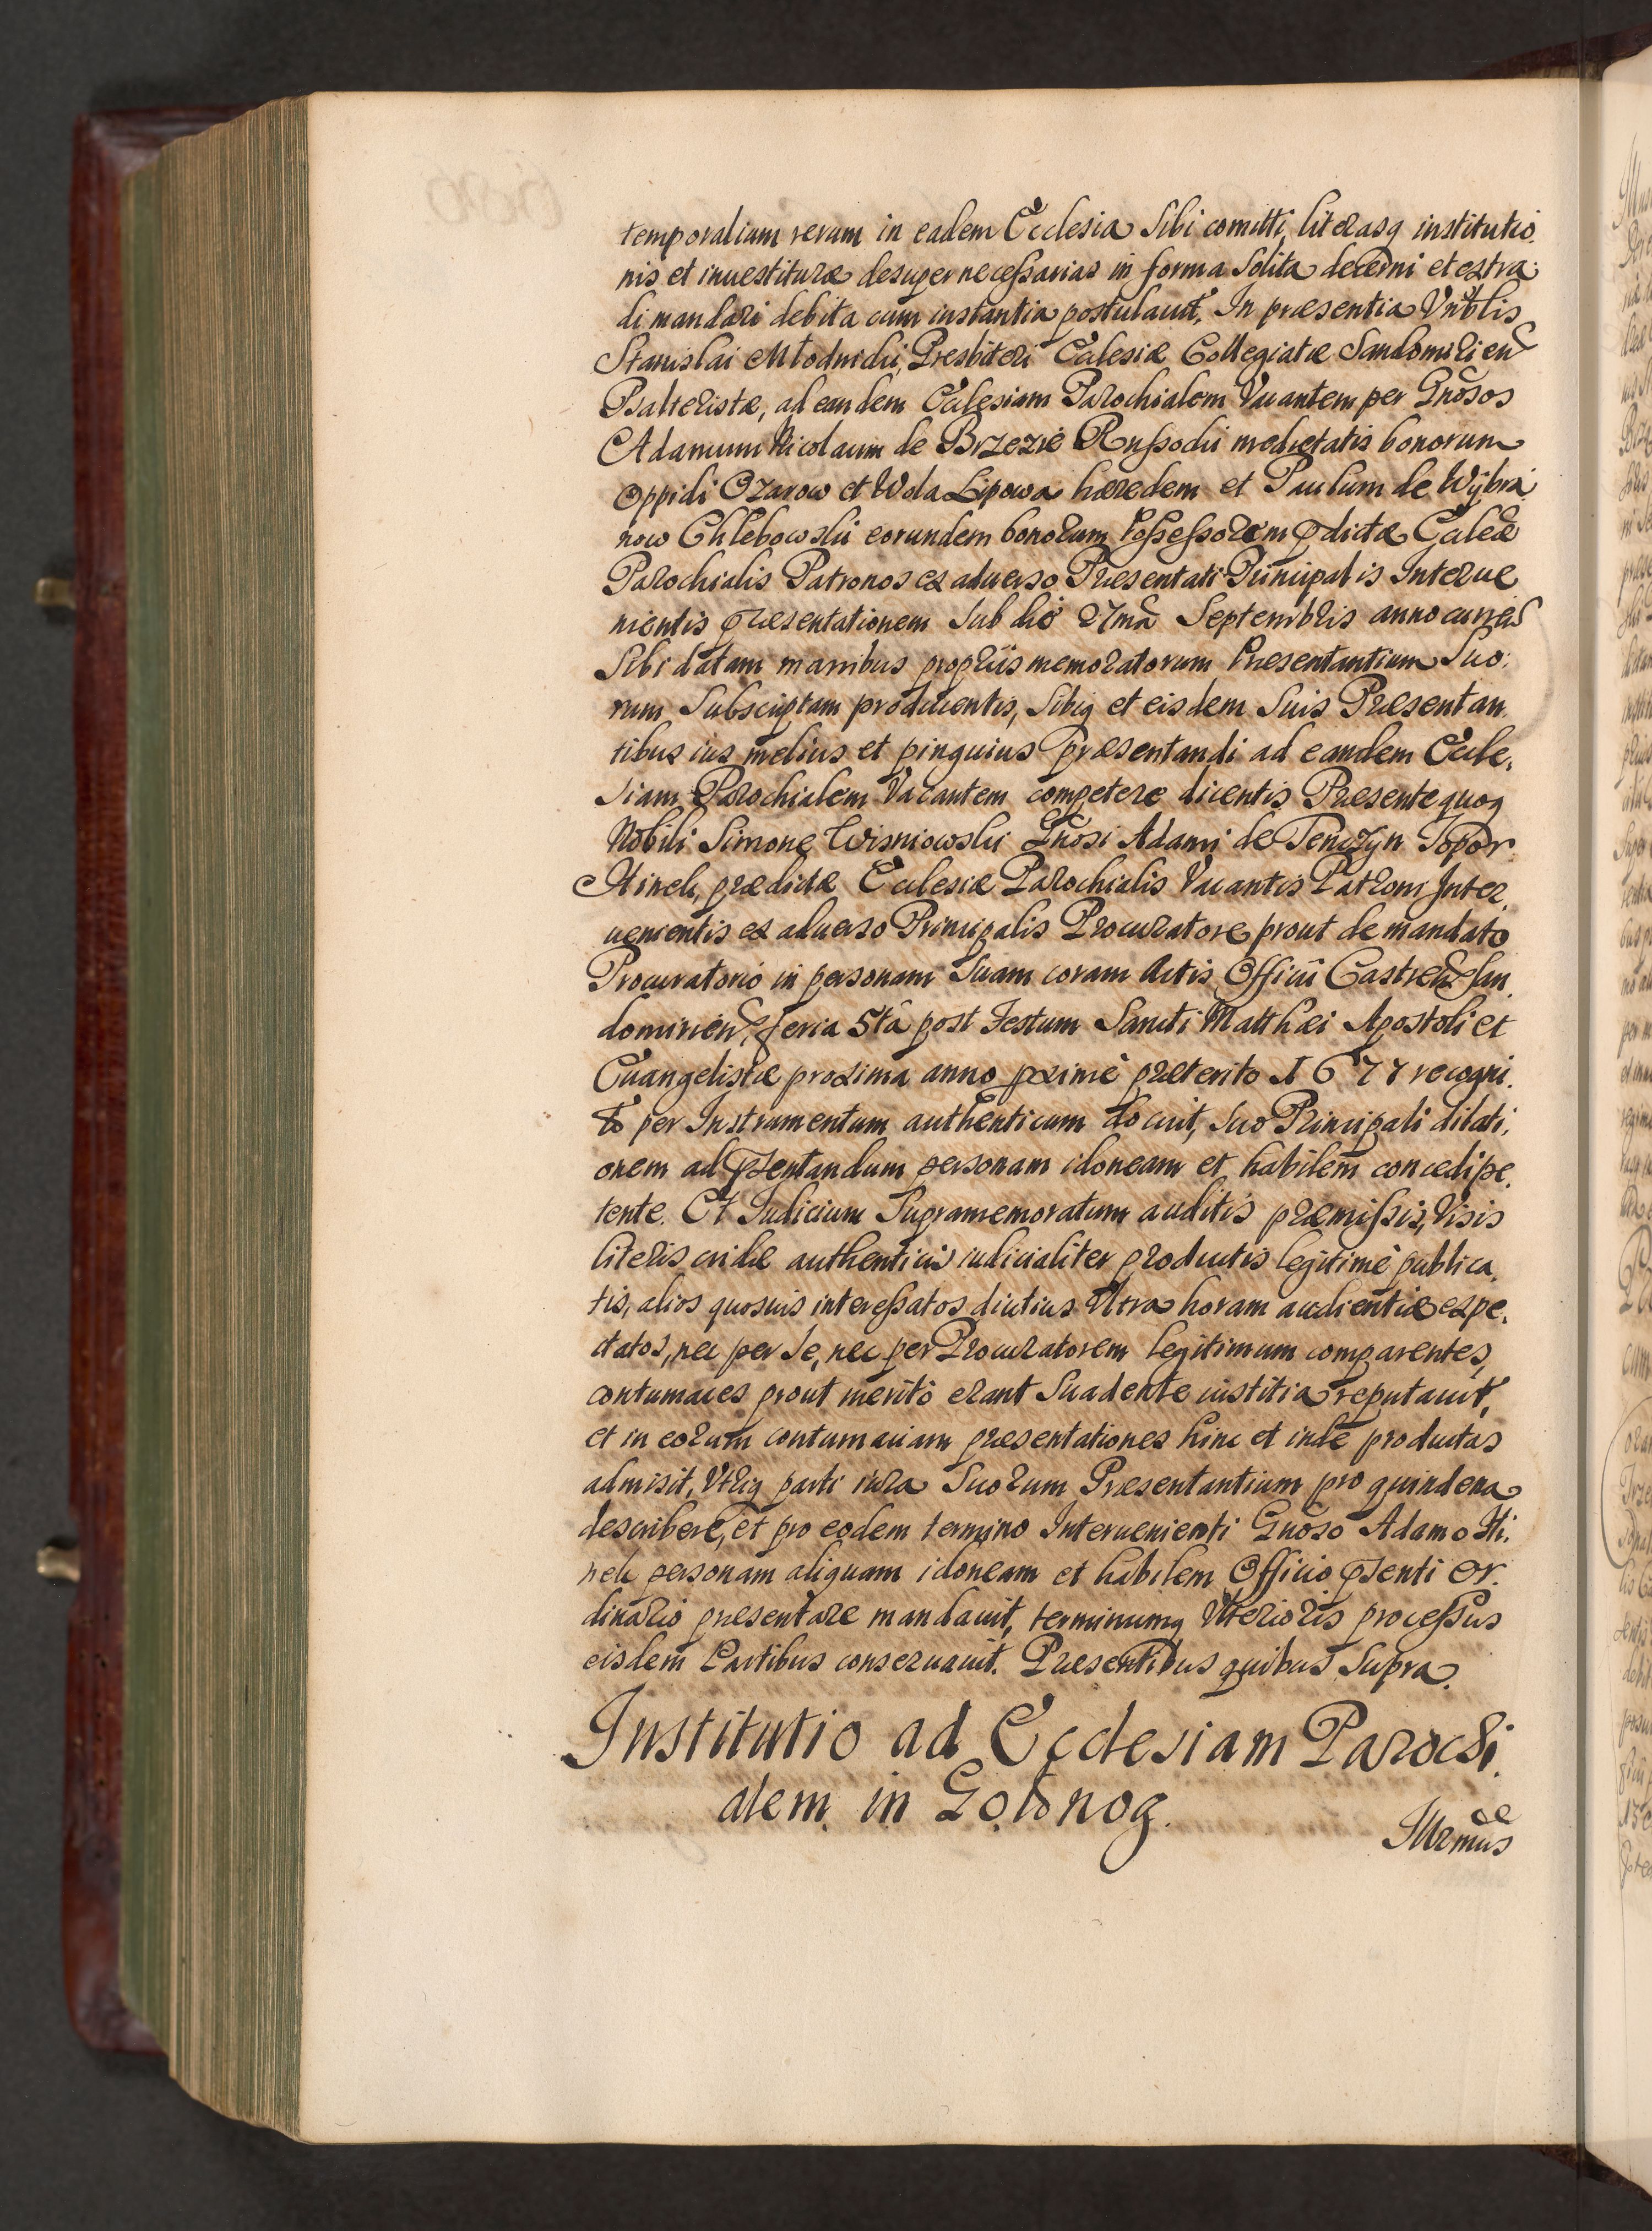 temporalium rerum in eadem Ecclesia Sibi comitti, literasq institutio.
nis et inuestituræ desuper necessarias in forma Solita decerni et extra:
di mandari debita cum instantia postulauit. In præsentia Vnblis
Stanislai Młodnicki, Presbiteri Ecclesiæ Collegiatæ Sandomirien
Psalteristæ, ad eandem Ecclesiam Parochialem Vacantem per Gnosos
Adamum Nicolaum de Brzezie Russocki medietatis bonorum
Oppidi Ozarow et Wola Lipowa hæredem et Paulum de Wybra
now Chlebowski eorundem bonorum Possessorem pdictæ Ecclæ
Parochialis Patronos ex aduerso Præsentati Principalis Interue
nientis præsentationem Sub die 27ma Septembris anno curren
Sibi datam manibus proprijs memoratorum Præsentantium Suo:
rum Subscriptam producentis, Sibiq et eisdem Suis Præsentan.
tibus ius melius et pinguius præsentandi ad eandem Eccle.
siam Parochialem Vacantem competere dicentis Præsente quoq
Nobili Simone Wisniowski Gnosi Adami de Tenczyn Topor
Itinek, prædictæ Ecclesiæ Parochialis Vacantis Patroni Inter.
uenientis ex aduerso Principalis Procuratore prout de mandato
Procuratorio in personam Suam coram Actis Officij Castren San.
domirien, feria 5ta post Festum Sancti Matthæi Apostoli et
Euangelistæ proxima anno pxime præterito 1677 recogni.
to per Instrumentum authenticum docuit, Suo Principali dilati,
onem ad psentandum personam idoneam et habilem concedi pe.
tente. Et Iudicium Supramemoratum auditis præmissis, Visis
literis cridæ authenticis iudicialiter productis legitime publica.
tis, alios quosuis interessatos diutius Vltra horam audientiæ expe.
ctatos, nec per Se, nec per Procuratorem legitimum comparentes,
contumaces prout merito erant Suadente iustitia reputauit,
et in eorum contumaciam præsentationes hinc et inde productas
admisit, Vtriq parti iura Suorum Præsentantium pro quindena
describere, et pro eodem termino Interuenienti Gnoso Adamo Iti.
nek personam aliquam idoneam et habilem Officio psenti Or.
dinario præsentare mandauit, terminumq Vlterioris processus
eisdem Partibus conseruauit. Præsentibus quibus Supra.
Institutio ad Ecclesiam Parochi.
alem in Gołonog.
Illrmus